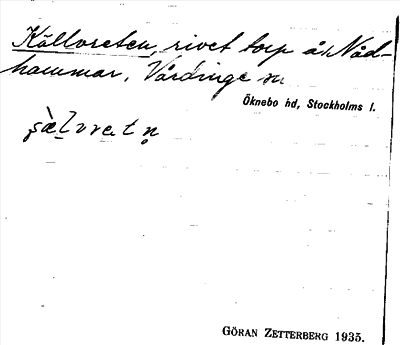 Källvreten, rivet torp å Nåd-
hammar. Vårdinge sn
Öknebo hd, Stockholms l.
GÖRAN ZETTERBERG 1935.